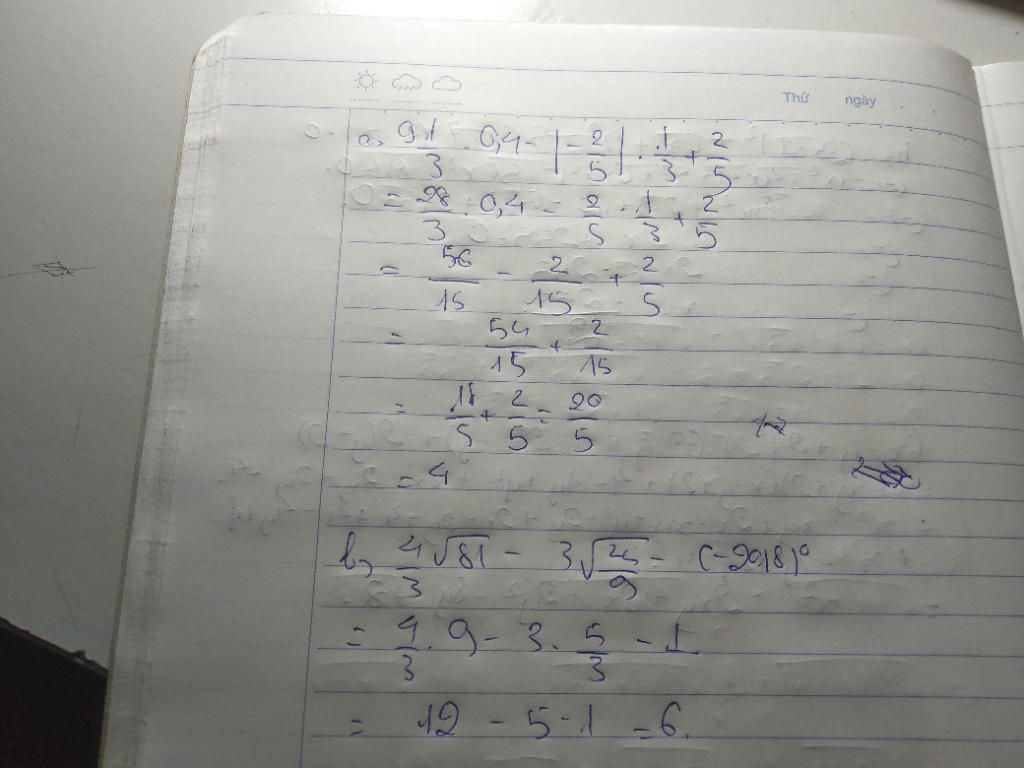 Thứ ngày
a, 9 1/3 . 0,4 - |-2/5| . 1/3 + 2/5
= 28/3 . 0,4 - 2/5 . 1/3 + 2/5
= 56/15 - 2/15 + 2/5
= 54/15 + 2/15
= 18/5 + 2/5 = 20/5
= 4
b, 4/3 √81 - 3 √(25/9) - (-2018)⁰
= 4/3 . 9 - 3 . 5/3 - 1
= 12 - 5 - 1 = 6.